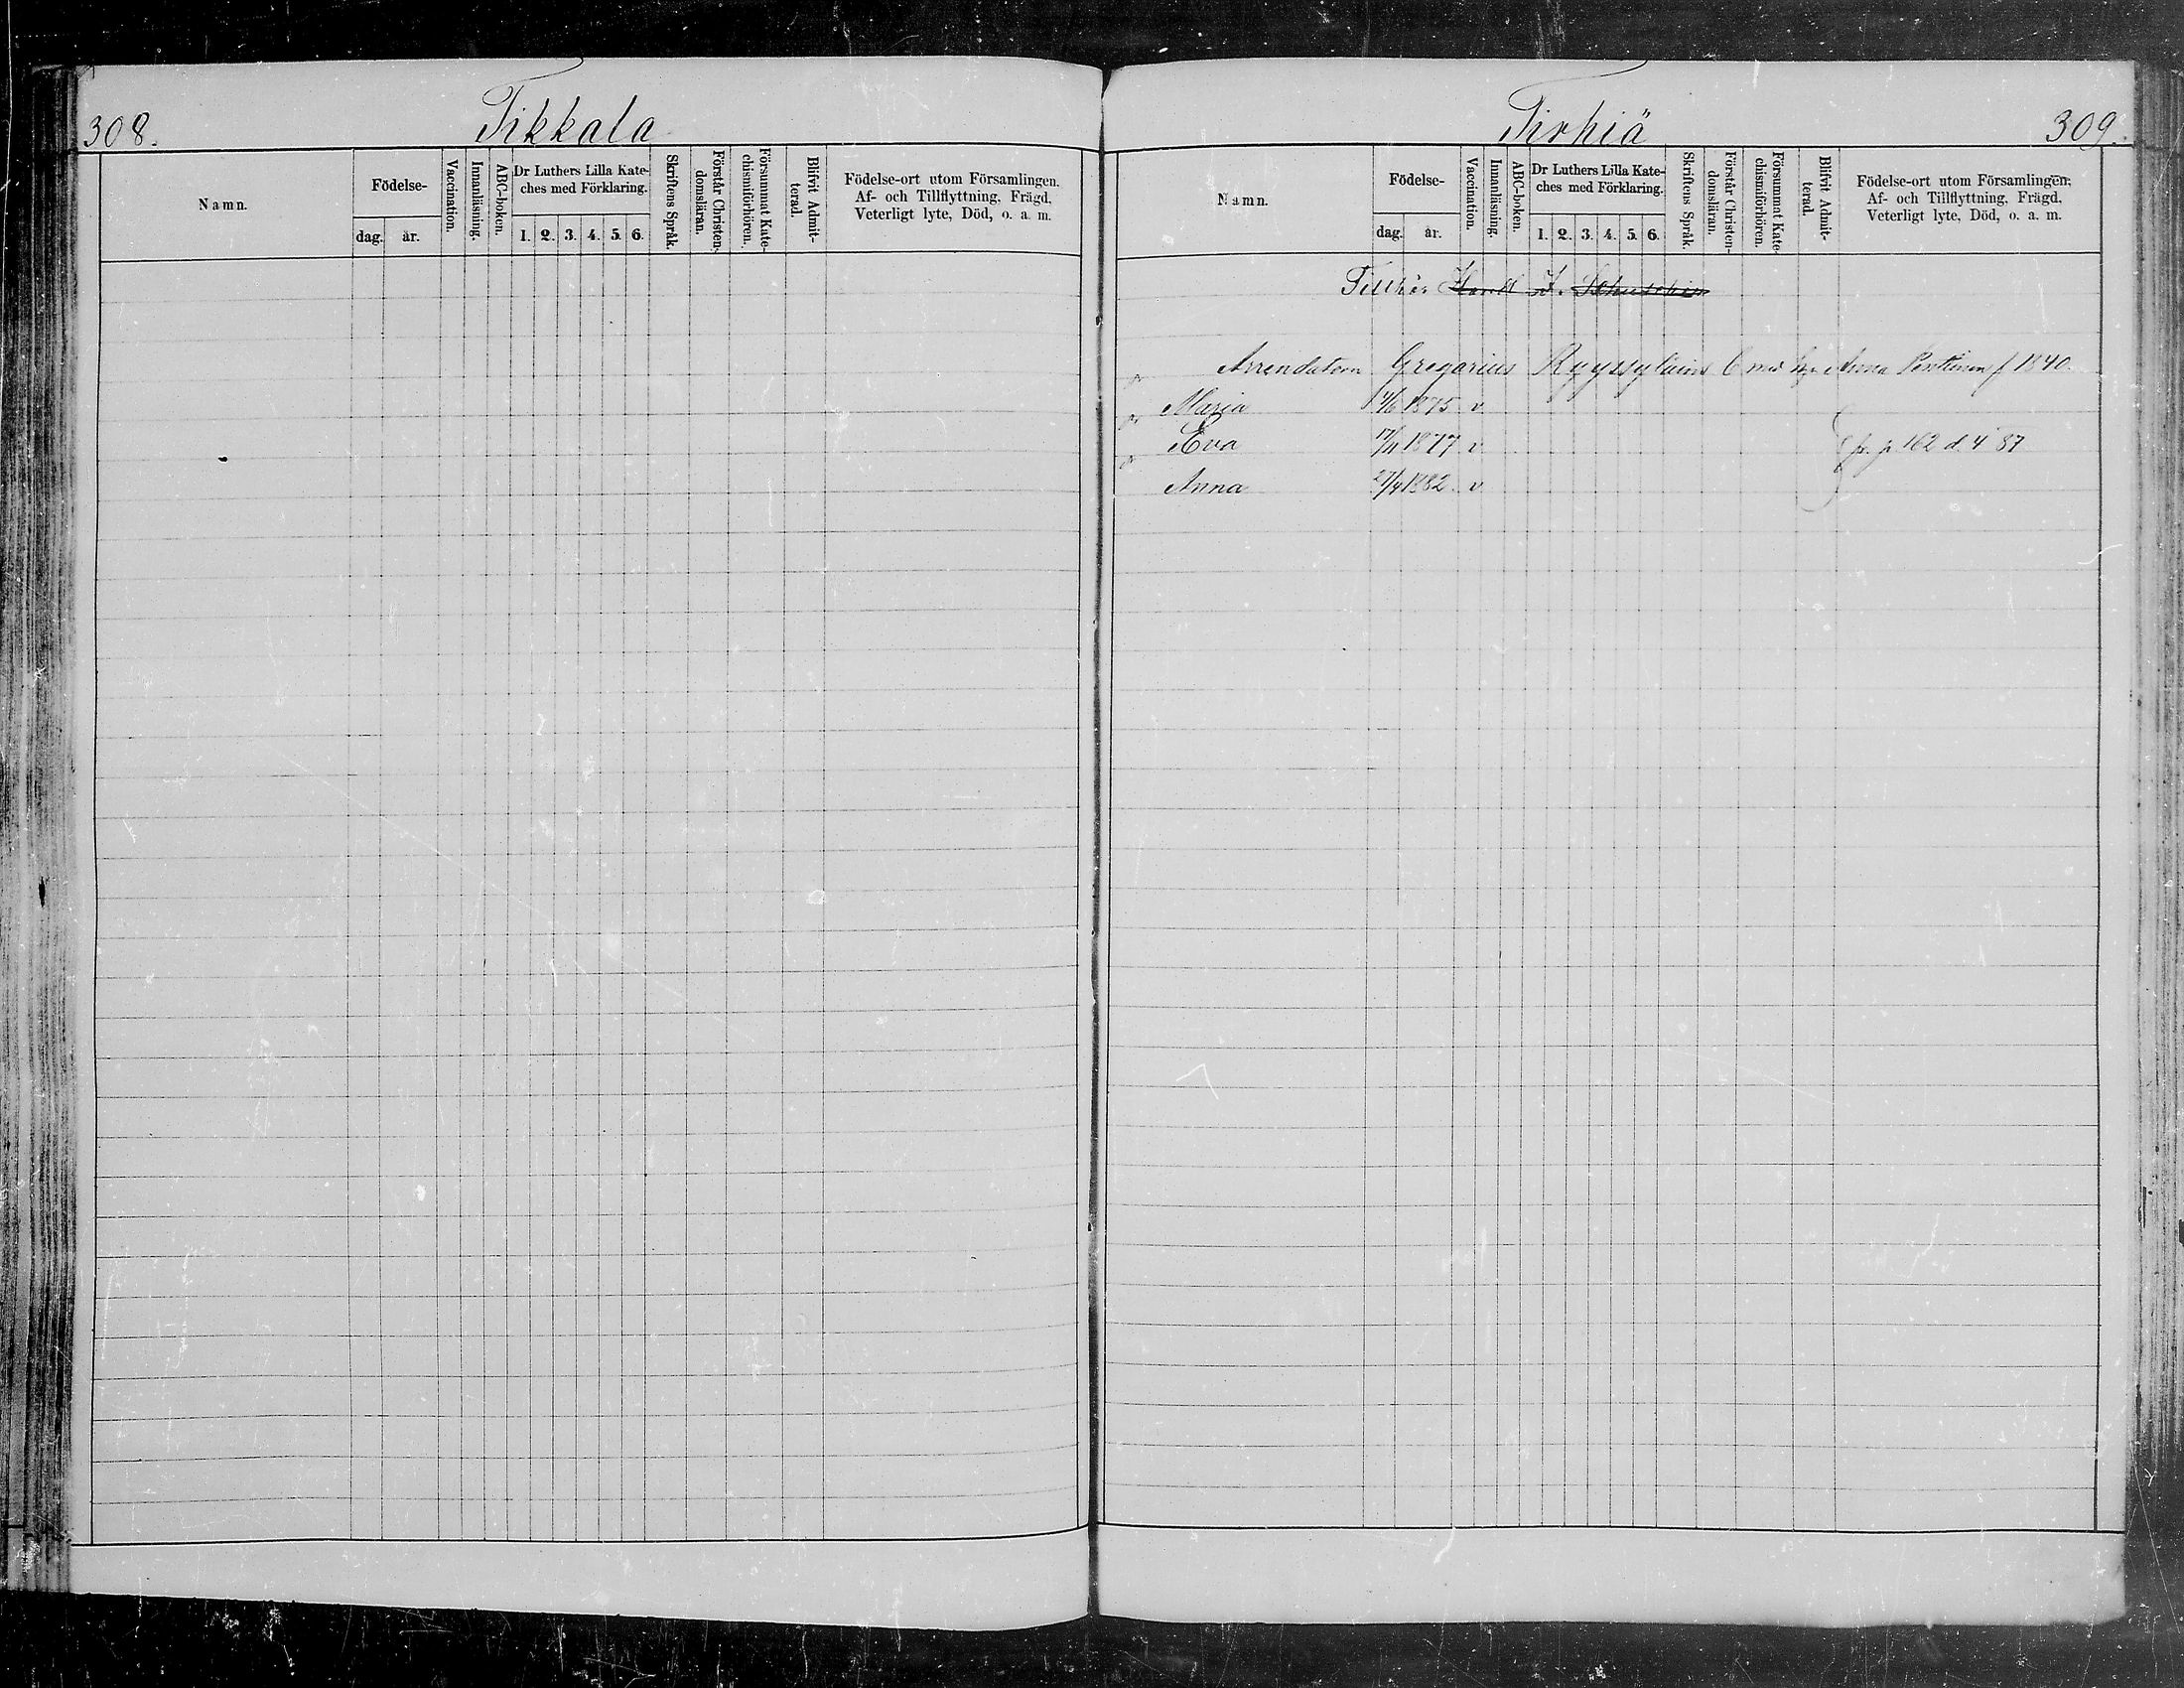 308.
Tikkala
Namn.
Födelse-
dag.
år.
Vaccination.
Innanläsning.
ABC-boken.
Dr Luthers Lilla Kate-
ches med Förklaring.
1. 2. 3. 4. 5. 6.
Skriftens Språk.
Förstår Christen-
domsläran.
Försummat Kate-
chismiförhören.
Blifvit Admit-
terad.
Födelse-ort utom Församlingen.
Af- och Tillflyttning, Frägd,
Veterligt lyte, Död, o. a. m.
Tirhiä
309.
Namn.
Födelse-
dag.
år.
Vaccination.
Innanläsning.
ABC-boken.
Dr Luthers Lilla Kate-
ches med Förklaring.
1. 2. 3. 4. 5. 6.
Skriftens Språk.
Förstår Christen-
domsläran.
Försummat Kate-
chismiförhören.
Blifvit Admit-
terad.
Födelse-ort utom Församlingen,
Af- och Tillflyttning, Frägd,
Veterligt lyte, Död, o. a. m.
Tillhör
Arrendatorn Gregorius med Anna f 1840.
Maria 4/6 1875 v
Eva 17/11 1877 v fr. p 162 d. 4 87
Anna 27/4 1882. v